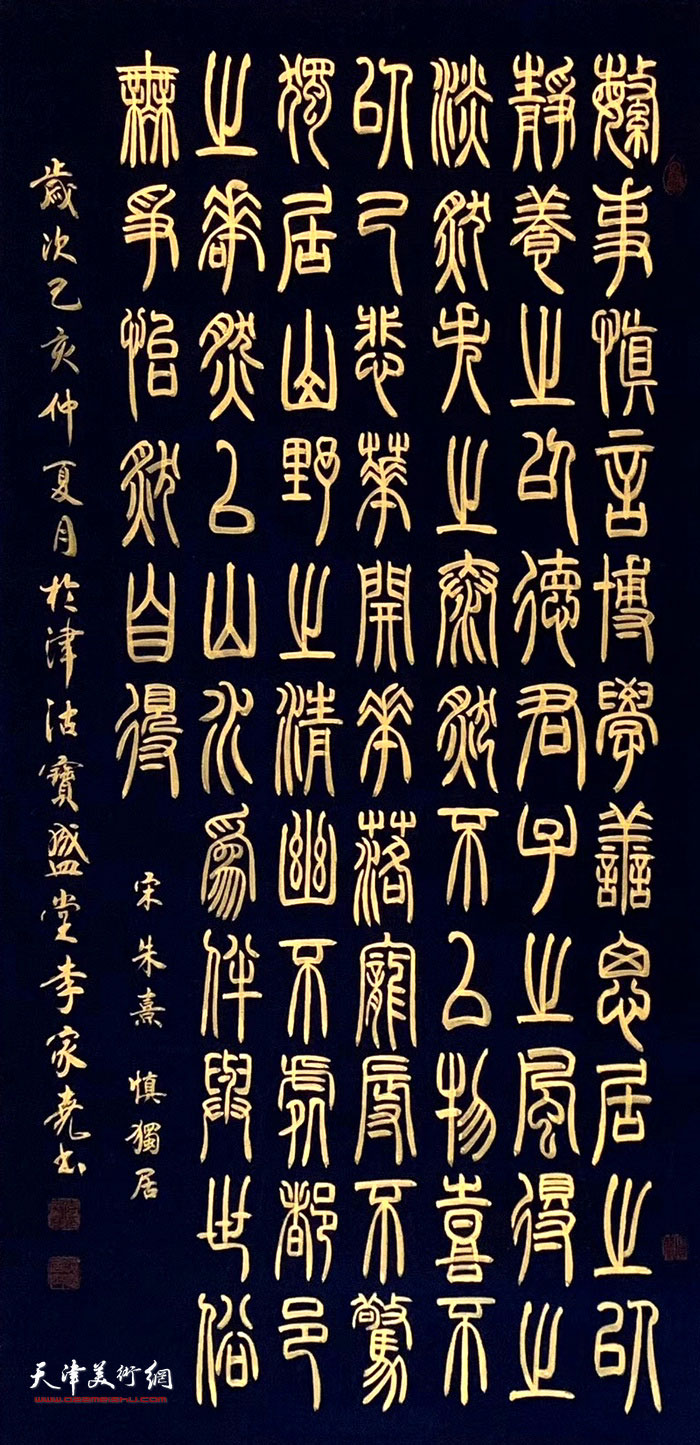 繁事慎言博學善思居之以
靜養之以德君子之風得之
淡然失之泰然不以物喜不
以己悲華開華落寵辱不驚
獨居山野之清幽不處都邑
之華然以山水爲伴與世俗
無爭怡然自得
宋朱熹 慎獨居
歲次己亥仲夏月於津沽寶盛堂李家堯書
天津美術網